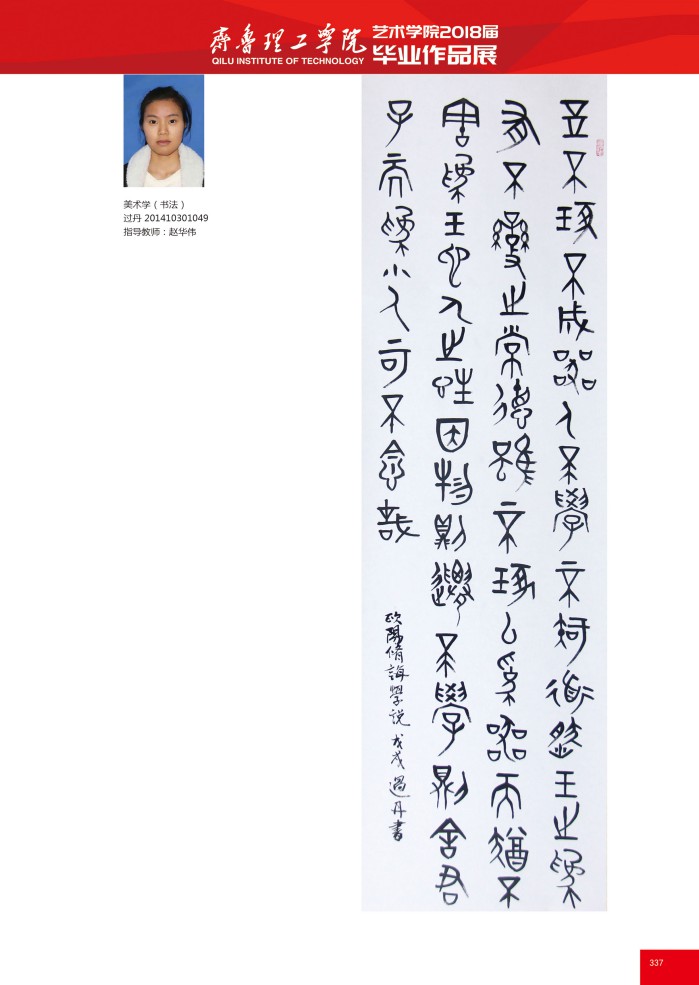 齊魯理工學院
QILU INSTITUTE OF TECHNOLOGY
艺术学院2018届
毕业作品展
美术学（书法）
过丹 201410301049
指导教师：赵华伟
玉不琢不成器人不學不知道然玉之為
有不變之常德雖不琢以為器而猶不
害為玉也人之性因物則遷不學則舍君
子而為小人可不念哉
欧陽脩誨學説 戊戌 過丹書
337